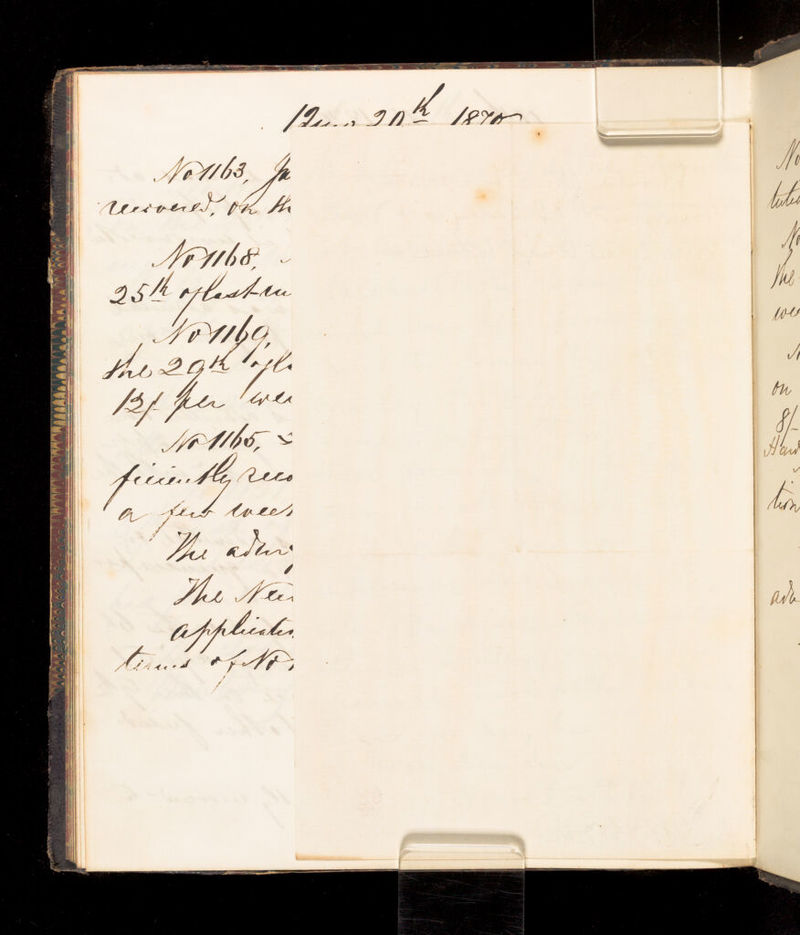 12mo 20th 1870
No 1163, Ja
recovered, on th
No 1168,
25th of last m
No 1169,
the 29th of la
12/ per wee
No 1165, S
ficiently reco
a few week
The adm
The New
applicatio
terms of No 1
No
tutio
No
the
wee
N
on
8/-
Haw
tion
adm